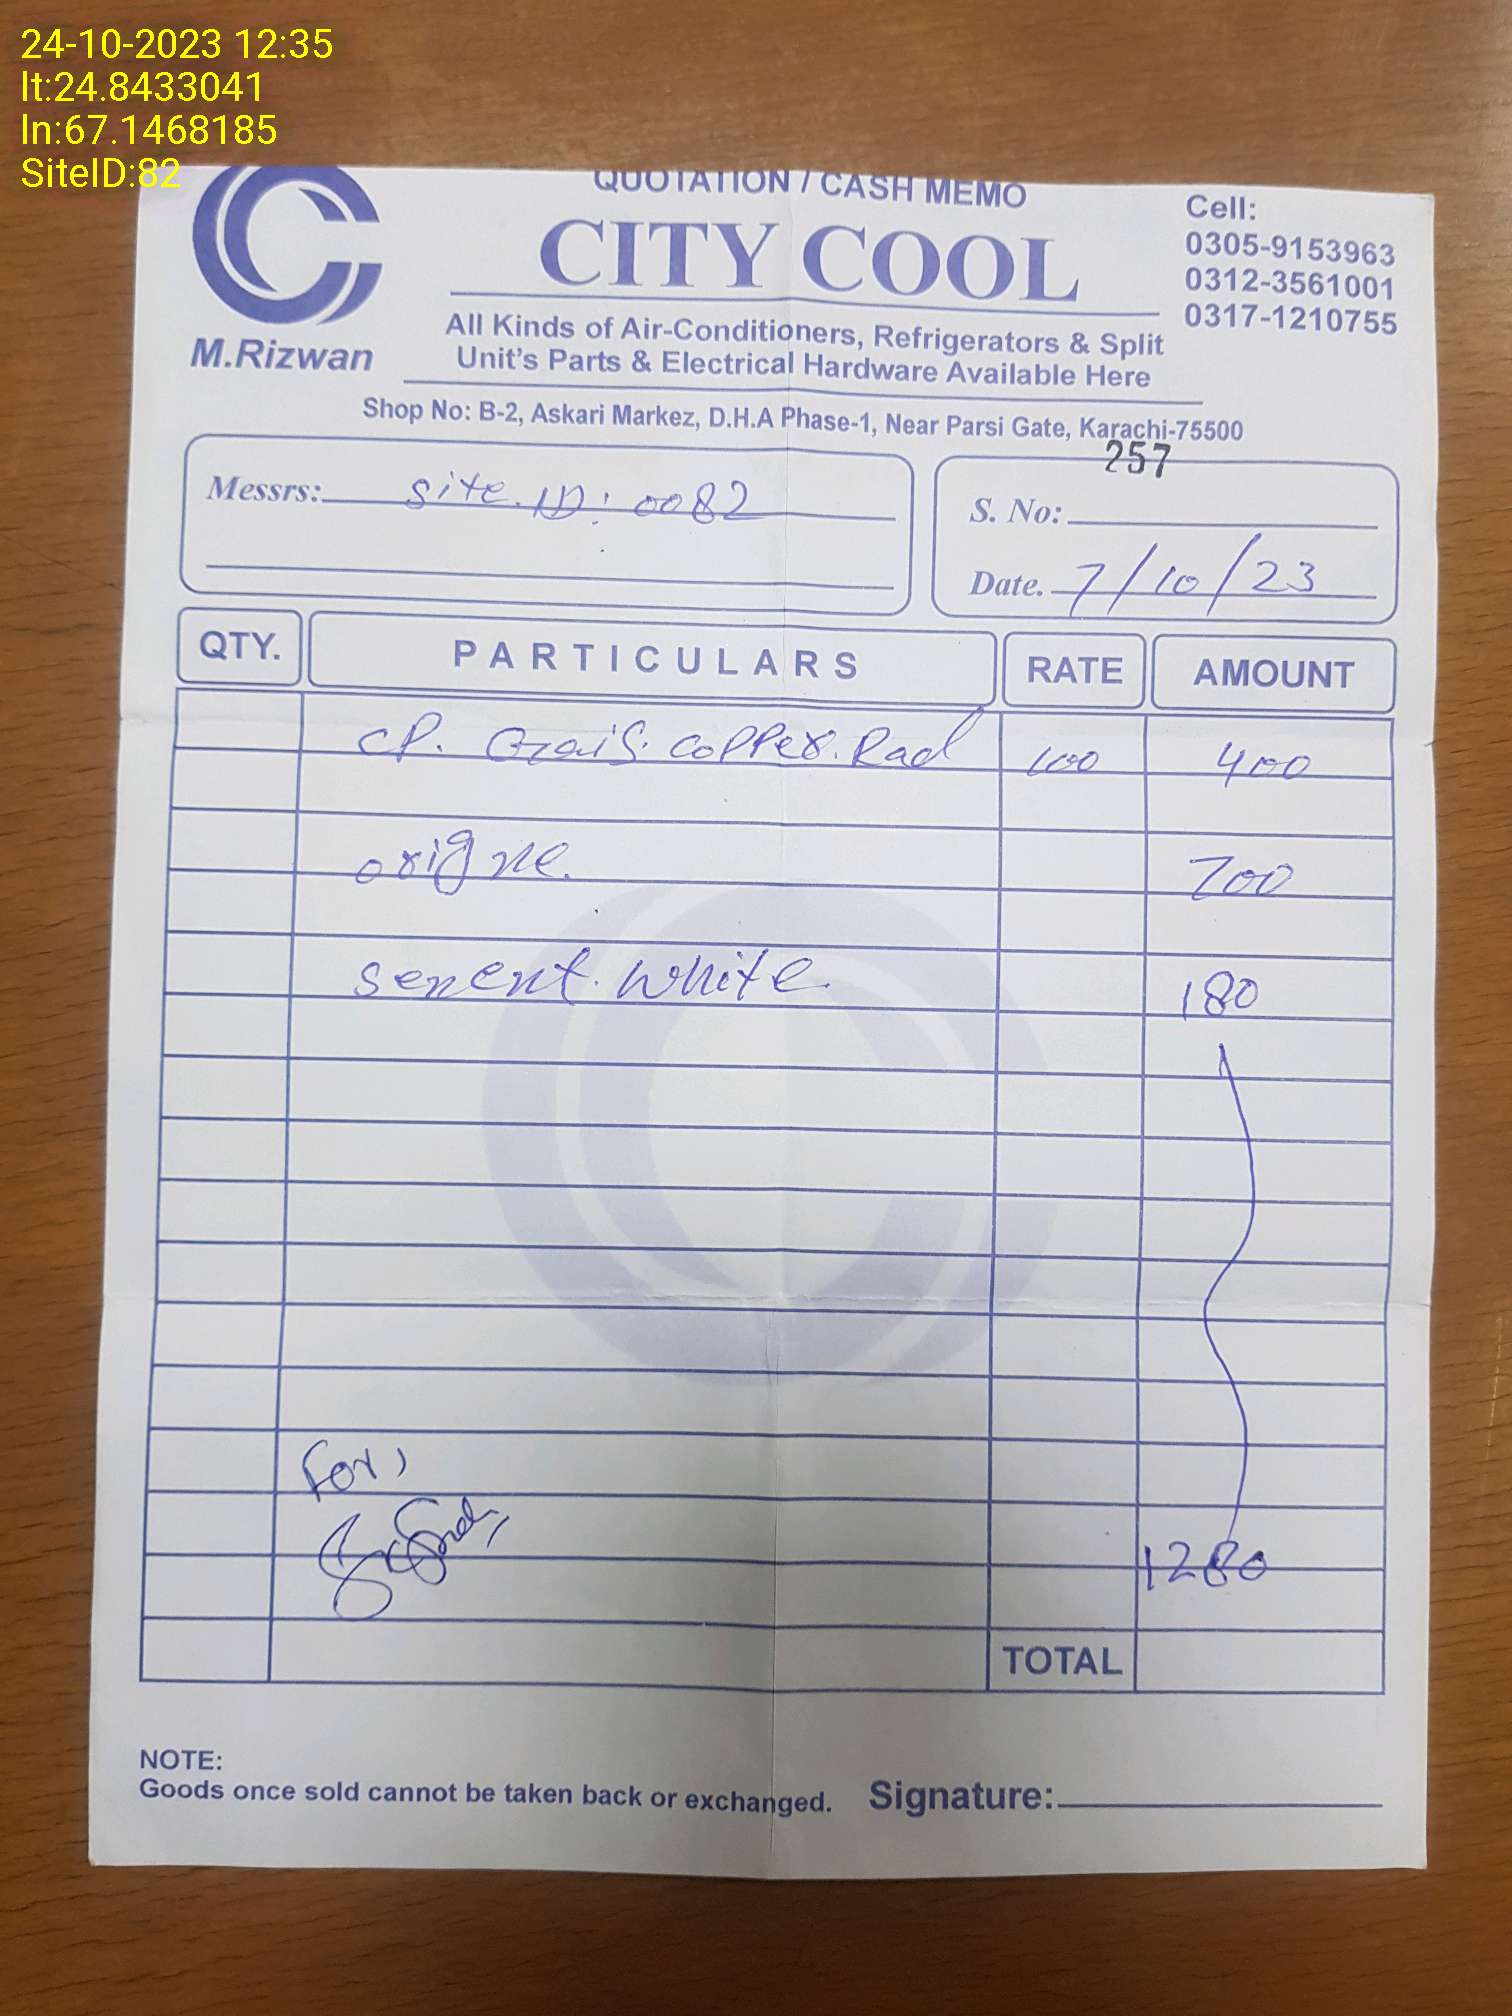 24-10-2023 12:35
lt:24.8433041
ln:67.1468185
SiteID:82
QUOTATION / CASH MEMO
CITY COOL
M.Rizwan
Cell:
0305-9153963
0312-3561001
0317-1210755
All Kinds of Air-Conditioners, Refrigerators & Split
Unit's Parts & Electrical Hardware Available Here
Shop No: B-2, Askari Markez, D.H.A Phase-1, Near Parsi Gate, Karachi-75500
257
Messrs: site.ID: 0082
S. No:
Date. 7/10/23
QTY. PARTICULARS RATE AMOUNT
CP. copper.Rad 100 400
origne. 700
senent.white 180
For,
1280
TOTAL
NOTE:
Goods once sold cannot be taken back or exchanged. Signature: